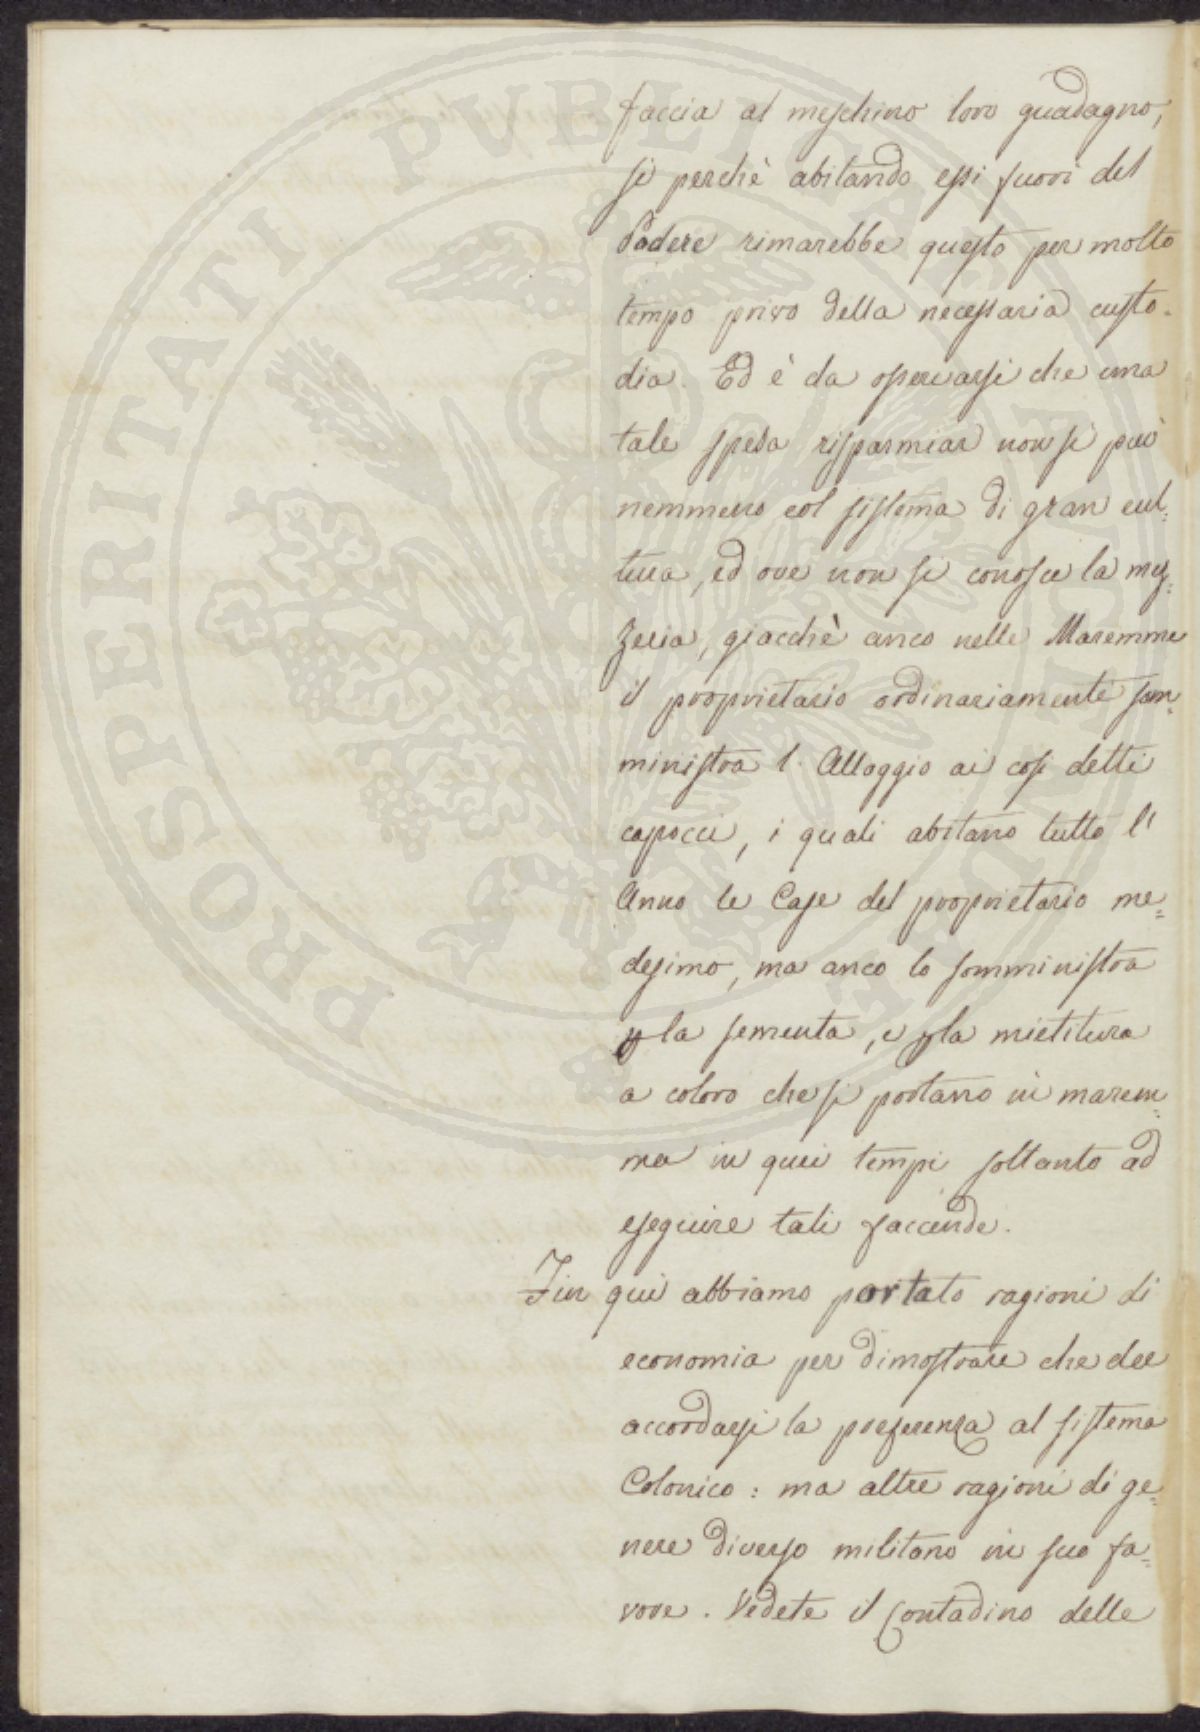 faccia al meschino loro guadagno,
sì perchè abitando essi fuori del
Podere rimarebbe questo per molto
tempo privo della necessaria custo-
dia. Ed è da osservarsi che una
tale spesa risparmiar non si può
nemmeno col sistema di gran cul=
tura, ed ove non si conosce la mez=
zeria, giacchè anco nelle Maremme
il proprietario ordinariamente som=
ministra l'Alloggio ai così detti
capocci, i quali abitano tutto l'
Anno le Case del proprietario me=
desimo, ma anco lo somministra
p la sementa, e p la mietitura
a coloro che si portano in marem=
ma in quei tempi soltanto ad
eseguire tali faccende.
Fin quì abbiamo portato ragioni di
economia per dimostrare che dee
accordarsi la preferenza al sistema
Colonico: ma altre ragioni di ge=
nere diverso militano in suo fa=
vore. Vedete il Contadino delle
PROSPERITATI PUBLICAE AUGENDAE